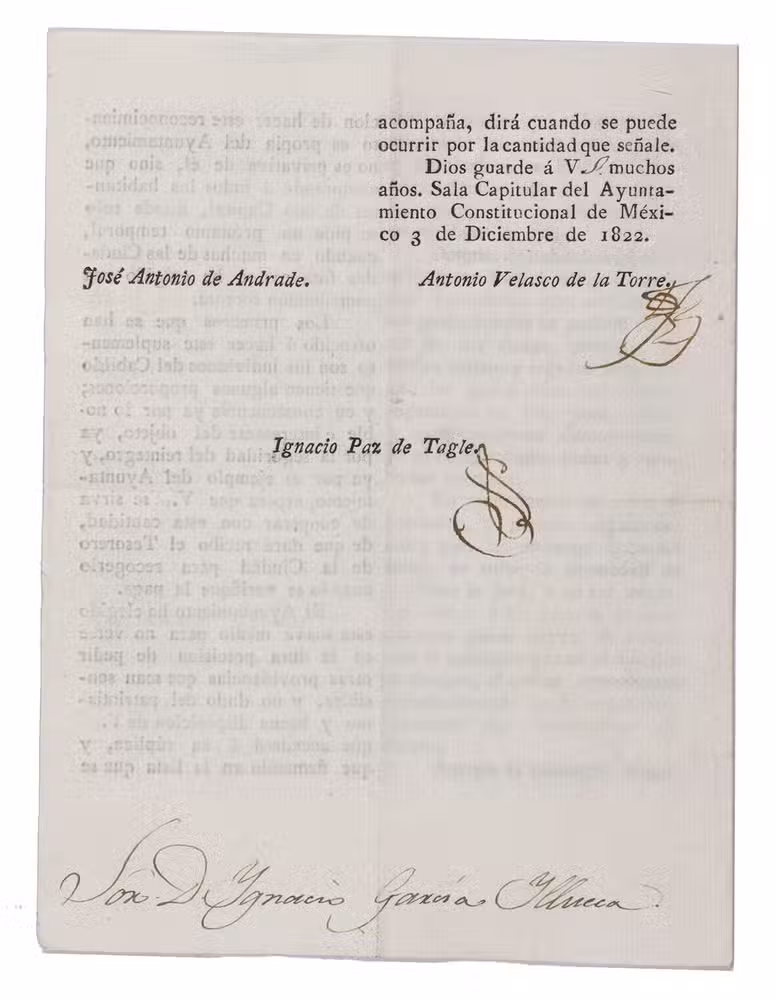 acompaña, dirá cuando se puede
ocurrir por la cantidad que señale.
Dios guarde á V S. muchos
años. Sala Capitular del Ayunta-
miento Constitucional de Méxi-
co 3 de Diciembre de 1822.
José Antonio de Andrade.
Antonio Velasco de la Torre.
Ignacio Paz de Tagle.
Sór. D. Ygnacio García Yllueca.